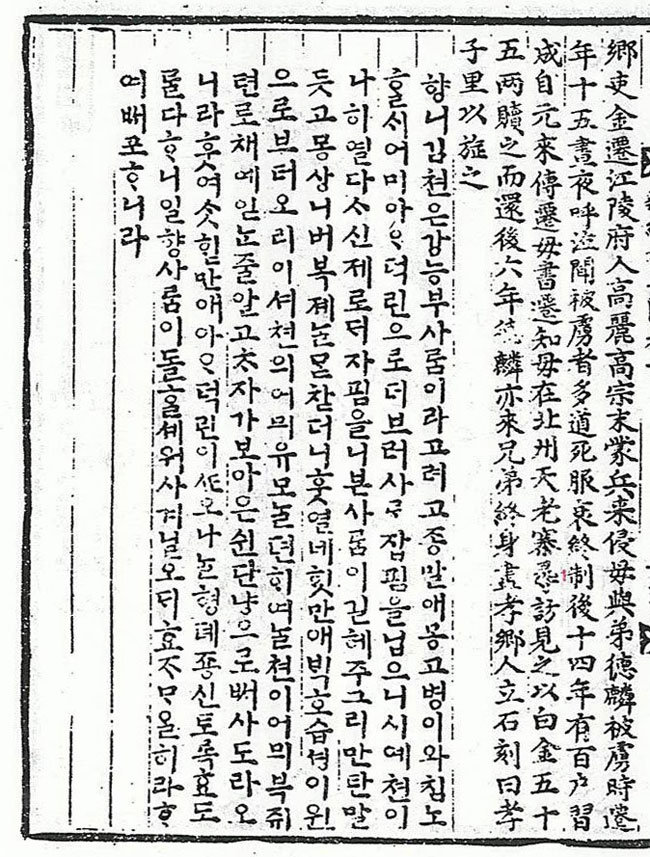 鄕吏金遷江陵府人高麗高宗末蒙兵來侵母與弟德麟被虜時遷
年十五晝夜呼泣聞被虜者多道死服衰終制後十四年有百户習
成自元來傳遷母書遷知母在北州天老寨尋訪見之以白金五十
五两贖之而還後六年德麟亦來兄弟終身盡孝鄕人立石刻曰孝
子里以旌之
향니김쳔은강능부사ᄅᆞᆷ이라고려고죵말애몽고병이와침노
ᄒᆞᆯᄉᆡ어미아ᄋᆞ덕린으로더브러사ᄅᆞ잡핌을닙으니시예쳔이
나히열다ᄉᆞ신제로ᄃᆡ자핌을니븐사ᄅᆞᆷ이길헤주그리만탄말
듯고몽상니버복졔ᄅᆞᆯ찯더니훗열네힛만애ᄇᆡᆨ호습셩이원
으로브터오리이셔쳔의어믜유모ᄅᆞᆯ뎐ᄒᆞ여ᄂᆞᆯ쳔이어믜북쥐
텬로채예인ᄂᆞᆫ줄알고자가보아은쉰단냥으로ᄡᅥ사도라오
니라훗여ᄉᆞᆺᄒᆡᆫ만애아ᄋᆞ덕린이ᄯᅩ오나ᄂᆞᆯ형뎨죵신토록효도
ᄅᆞᆯ다ᄒᆞ니일향사ᄅᆞᆷ이돌ᄒᆞᆯ셰워사겨닐오ᄃᆡ효ᄌᆞᄆᆞᄋᆞᆯ히라ᄒᆞ
여ᄡᅥ포ᄒᆞ니라